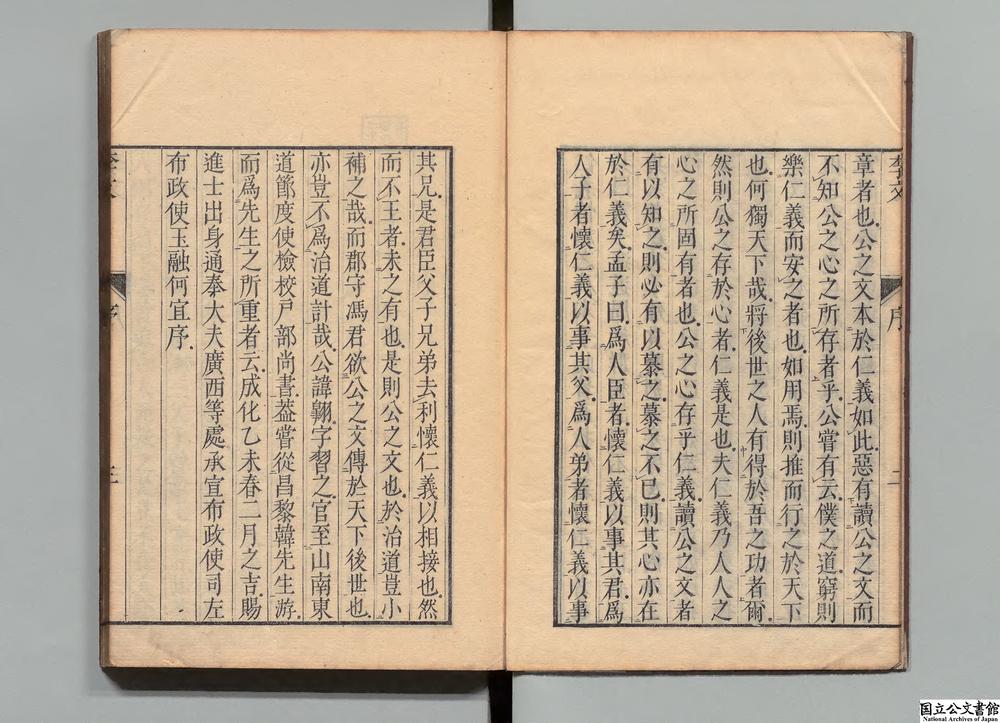 李文
序
二
章者也公之文本於仁義如此惡有讀公之文而
不知公之心之所存者乎公嘗有云僕之道窮則
樂仁義而安之者也如用焉則推而行之於天下
也何獨天下哉將後世之人有得於吾之功者爾
然則公之存於心者仁義是也夫仁義乃人人之
心之所固有者也公之心存乎仁義讀公之文者
有以知之則必有以慕之慕之不已則其心亦在
於仁義矣孟子曰爲人臣者懷仁義以事其君爲
人子者懷仁義以事其父爲人弟者懷仁義以事
其兄是君臣父子兄弟去利懷仁義以相接也然
而不王者未之有也是則公之文也於治道豈小
補之哉而郡守馮君欲公之文傳於天下後世也
亦豈不爲治道計哉公諱翺字習之官至山南東
道節度使檢校戶部尚書葢嘗從昌黎韓先生游
而爲先生之所重者云成化乙未春二月之吉賜
進士出身通奉大夫廣西等處承宣布政使司左
布政使玉融何宜序
李文
序
三
国立公文書館
National Archives of Japan